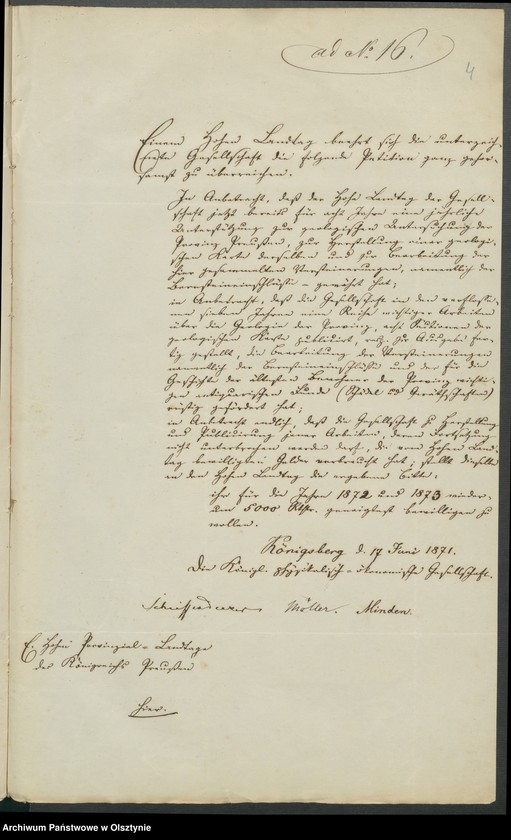 ad No 16.
4
Einem Hohen Landtag beehrt sich die unterzeich-
nete Gesellschaft die folgende Petition ganz gehor-
samst zu überreichen.
In Anbetracht, daß der Hohe Landtag der Gesell-
schaft jetzt bereits für acht Jahre eine jährliche
Unterstützung zur geologischen Untersuchung der
Provinz Preußen, zur Herstellung einer geologi-
schen Karte derselben und zur Bearbeitung der
hier gesammelten Versteinerungen, namentlich der
Bernsteineinschlüsse - gewährt hat;
in Anbetracht, daß die Gesellschaft in den verflosse-
nen sieben Jahren eine Reihe wichtiger Arbeiten
über die Geologie der Provinz, acht Sectionen der
geologischen Karte publicirt, resp. zur Ausgabe fer-
tig gestellt, die Bearbeitung der Versteinerungen
namentlich der Bernsteineinschlüsse und der für die
Geschichte der ältesten Bewohner der Provinz wichti-
gen antiquarischen Funde (Schädel und Geräthschaften)
rüstig gefördert hat;
in Anbetracht endlich, daß die Gesellschaft zu Herstellung
und Publicirung jener Arbeiten, deren Fortsetzung
nicht unterbrochen werden darf, die vom Hohen Land-
tag bewilligten Gelder verbraucht hat; stellt dieselbe
an den Hohen Landtag die ergebene Bitte:
ihr für die Jahre 1872 und 1873 wieder-
um 5000 Rthr. geneigtest bewilligen zu
wollen.
Königsberg d. 17 Juni 1871.
Die Königl. physikalisch-ökonomische Gesellschaft.
Schiefferdecker Möller. Minden.
E. Hohen Provinzial-Landtage
des Königreichs Preußen
hier.
Archiwum Państwowe w Olsztynie